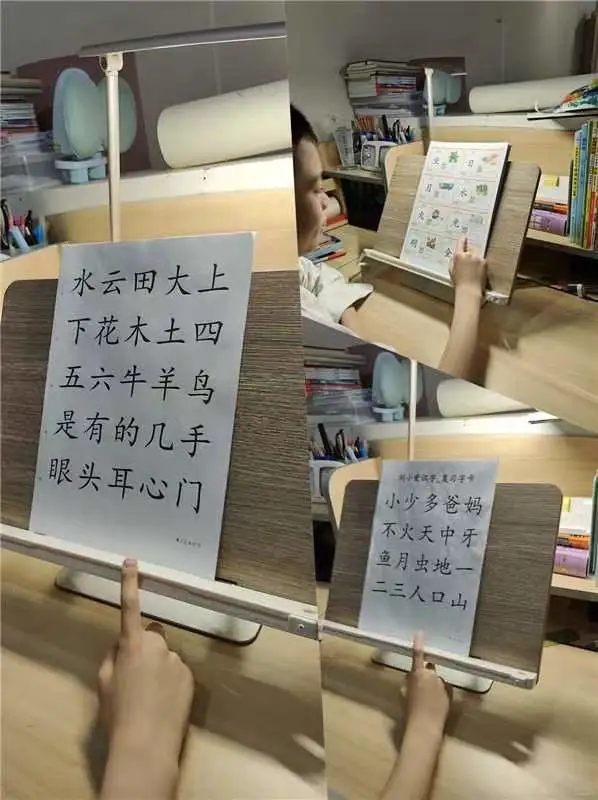 水云田大上
下花木土四
五六牛羊鸟
是有的几手
眼头耳心门
日
月 水
火
明
复习字卡
小少多爸妈
不火天中牙
鱼月虫地一
二三人口山